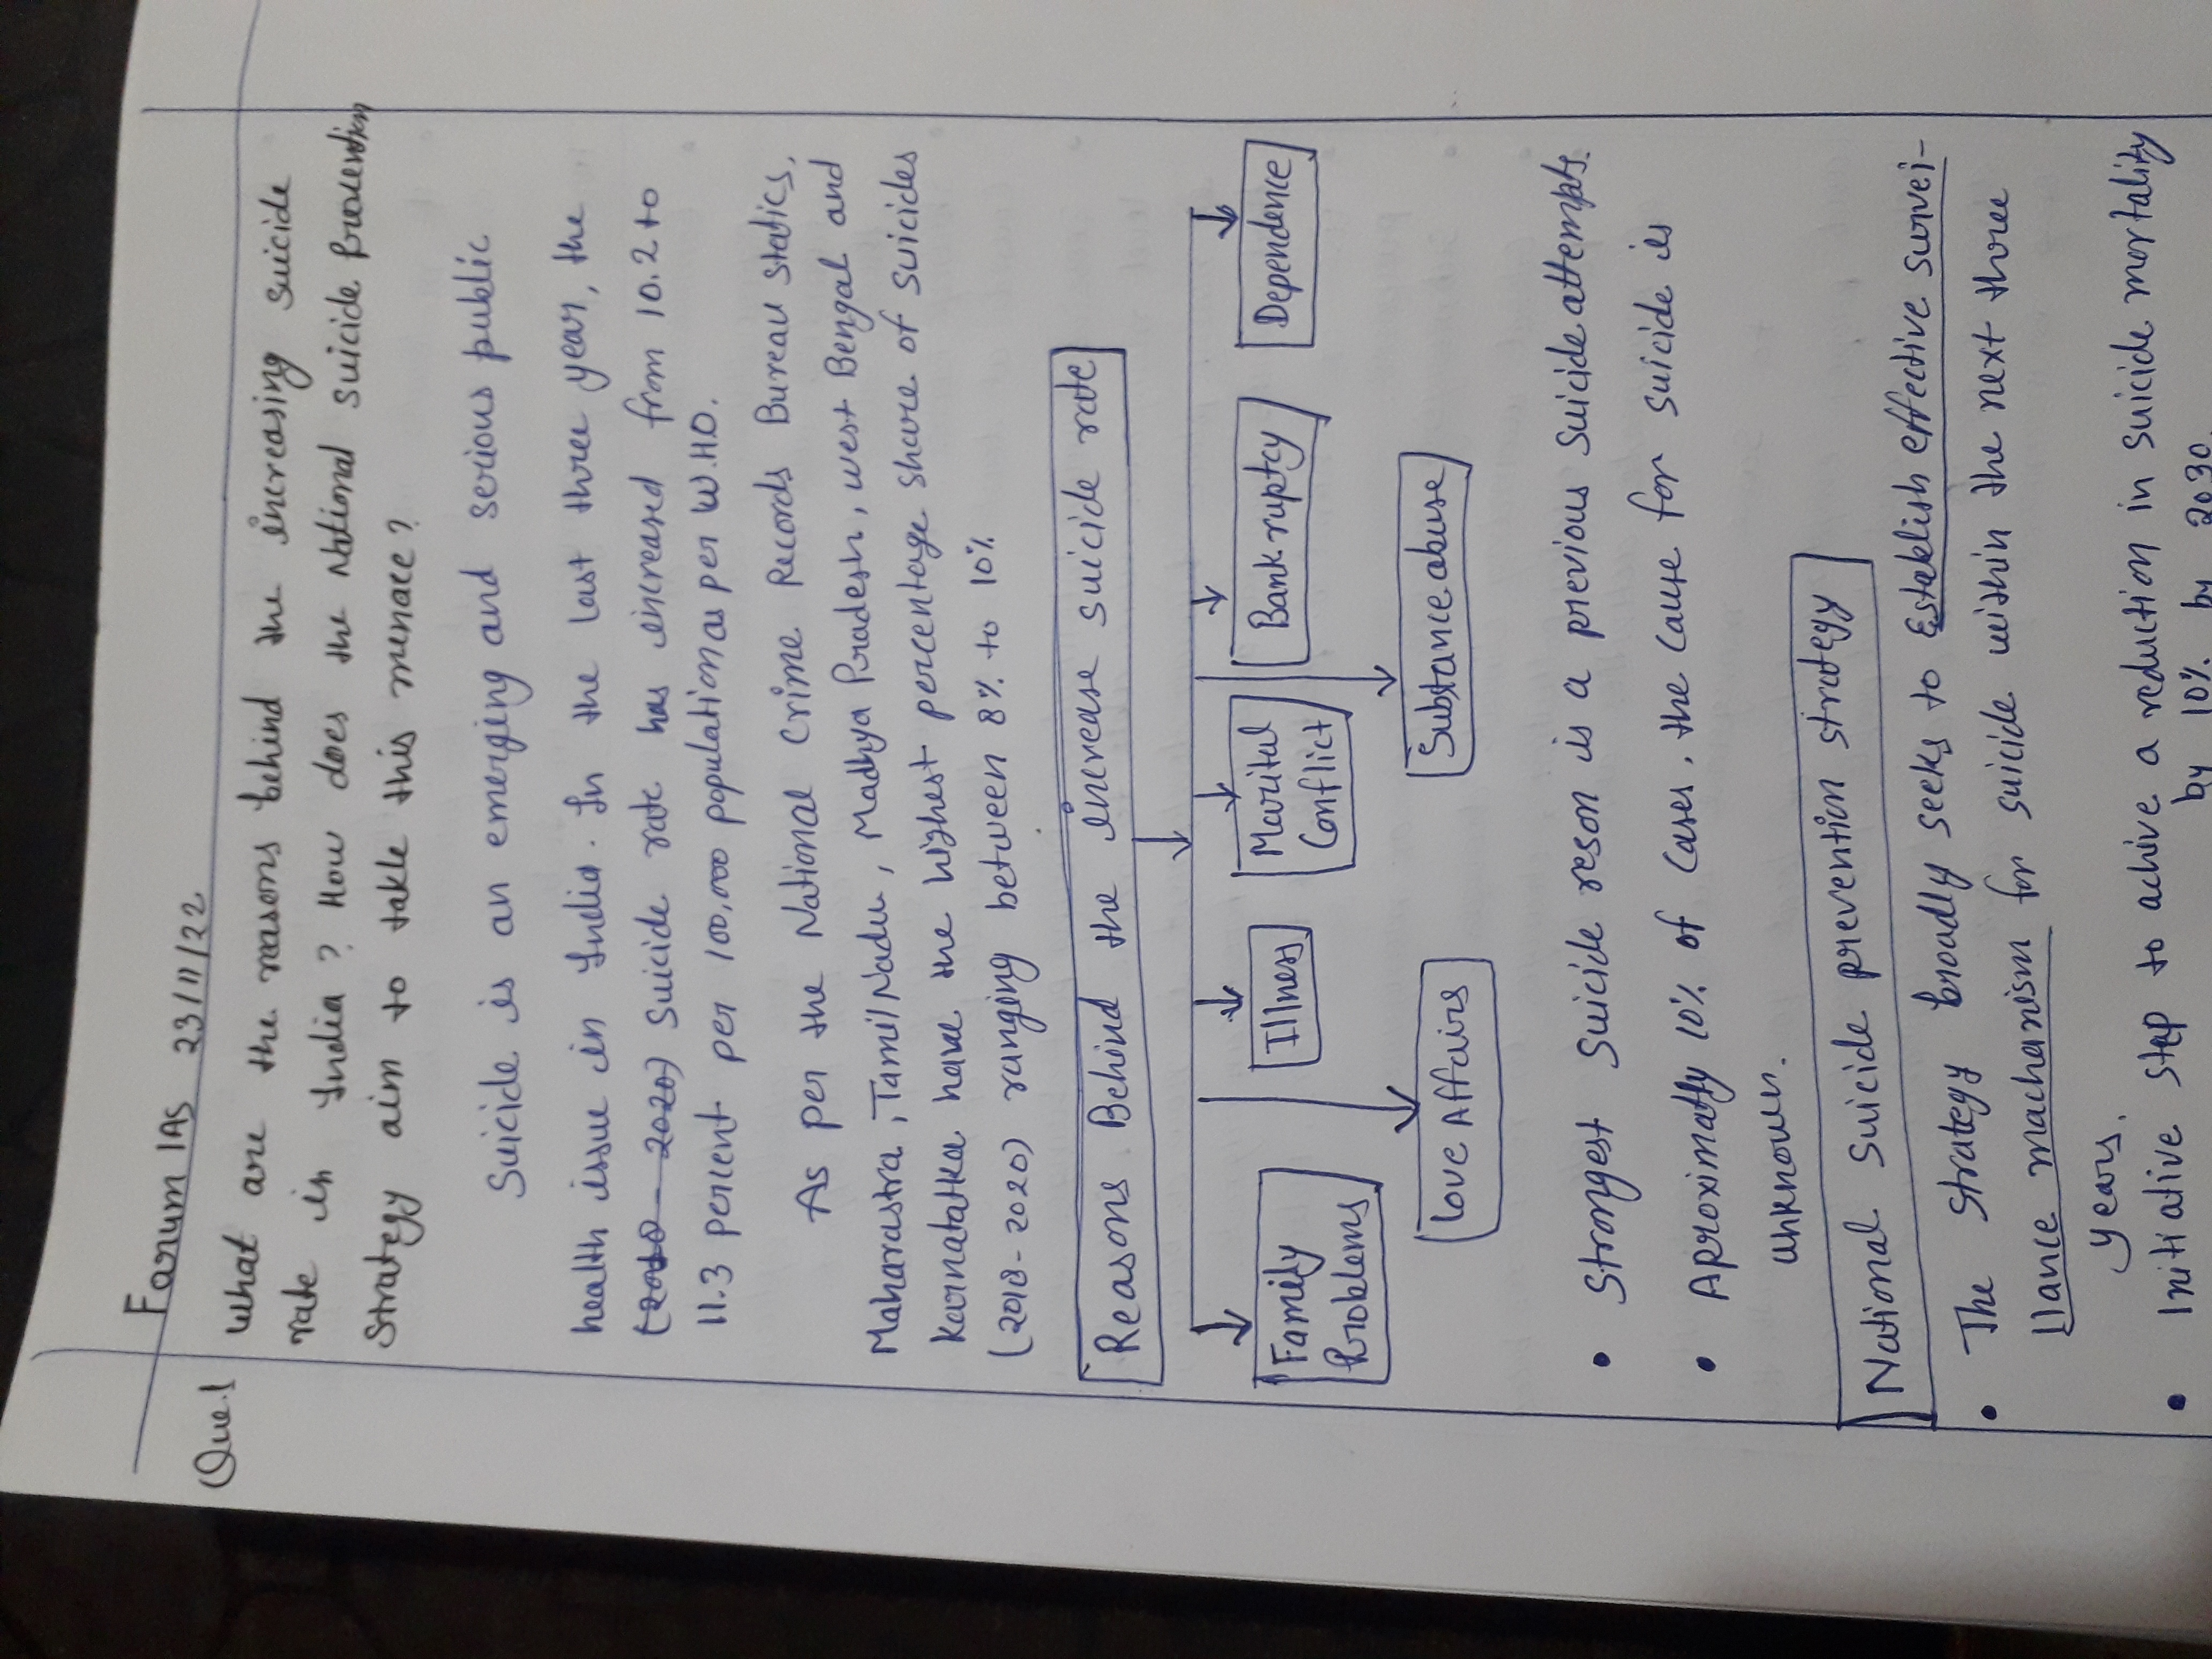 Forum IAS 23/11/22
Que.1 What are the reasons behind the increasing suicide
rate in India? How does the National Suicide Prevention
Strategy aim to takle this menace?
Suicide is an emerging and serious public
health issue in India. In the last three year, the
(2018-2020) suicide rate has increased from 10.2 to
11.3 percent per 100,000 population as per W.H.O.
As per the National Crime Records Bureau statics,
Maharastra, Tamil Nadu, Madhya Pradesh, west Bengal and
Kernatatka have the highest percentage share of suicides
(2018-2020) ranging between 8% to 10%
Reasons Behind the increase suicide rate
Family Problems
Illness
Marital Conflict
Bankruptcy
Dependence
Love Affairs
Substance abuse
• Strongest suicide reson is a previous suicide attempts.
• Approximatly 10% of cases, the cause for suicide is
unknown.
National Suicide prevention strategy
• The strategy broadly seeks to Establish effective survei-
llance machanism for suicide within the next three
years.
• Initiative step to achive a reduction in suicide mortality
by 10% by 2030.